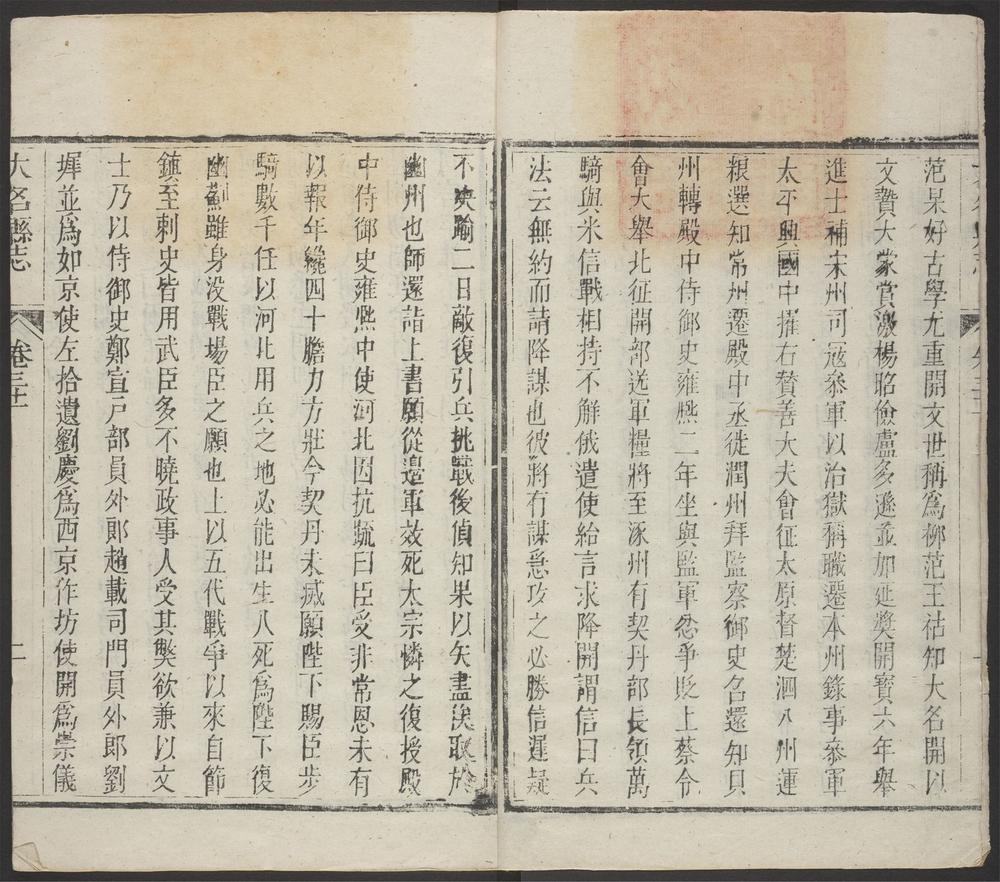 范杲好古學尤重開文世稱爲柳范王祜知大名開以
文贄大蒙賞激楊昭儉盧多遜並加延奬開寶六年舉
進士補宋州司寇叅軍以治獄稱職遷本州錄事叅軍
太平興國中擢右贊善大夫會征太原督楚泗八州運
粮選知常州遷殿中丞徙潤州拜監察御史召還知貝
州轉殿中侍御史雍熙二年坐與監軍忿爭貶上蔡令
會大舉北征開部送軍糧將至涿州有契丹部長領萬
騎與米信戰相持不解俄遣使紿言求降開謂信曰兵
法云無約而請降謀也彼將有謀急攻之必勝信遲疑
不決踰二日敵復引兵挑戰後偵知果以矢盡俟取於
幽州也師還詣上書願從邊軍效死太宗憐之復授殿
中侍御史雍熙中使河北因抗䟽曰臣受非常恩未有
以報年纔四十膽力方壯今契丹未滅願陛下賜臣步
騎數千任以河北用兵之地必能出生入死爲陛下復
幽薊雖身没戰場臣之願也上以五代戰爭以來自節
鎮至刺史皆用武臣多不曉政事人受其獘欲兼以文
士乃以侍御史鄭宣戸部員外郎趙載司門員外郎劉
墀並爲如京使左拾遺劉慶爲西京作坊使開爲崇儀
大名縣志
卷三十
二